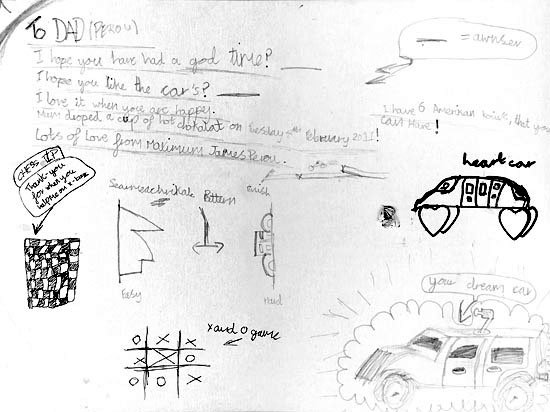 To DAD (PEROU)
I hope you have had a god time?
= awnser
I hope you like the car's?
I love it when you are happy.
Mum droped a cup of hot on Tuesday February 2011!
I have 6 Amerikan that you
cant Have!
Lots of Love from Maximum James Perou.
CHESS
Thank you
for when you
helpt me on x-box
Pattern
Easy
Hard
heart car
your dream car
x and o game
O X X
X X O
O O X